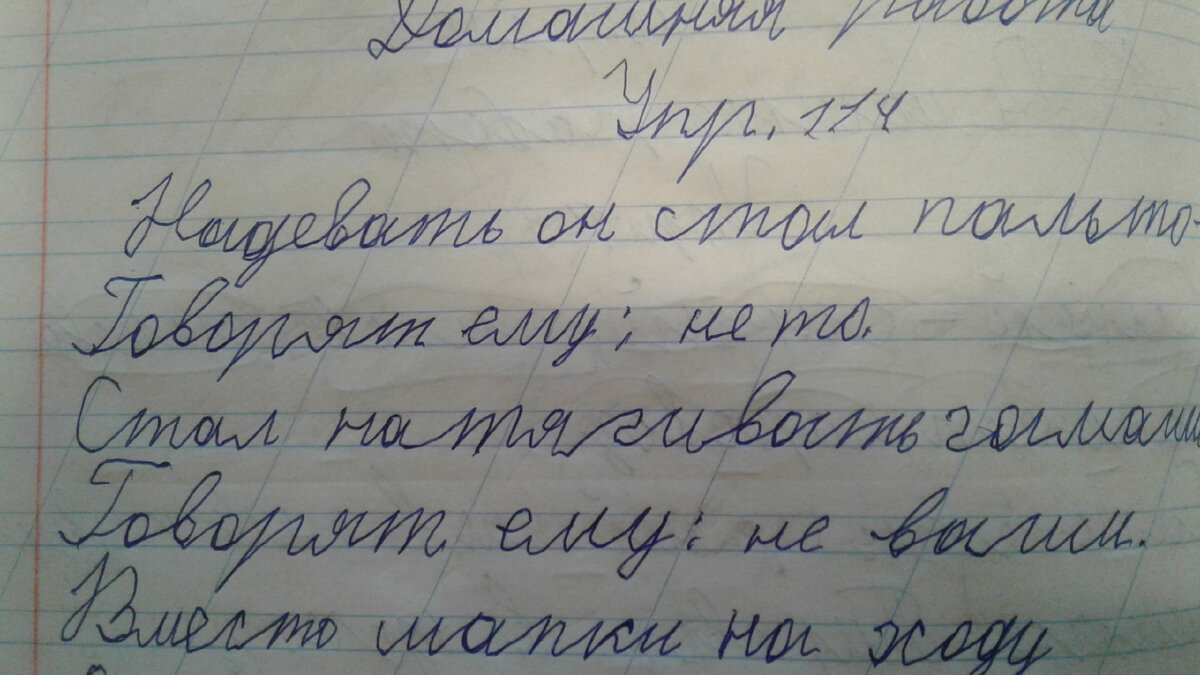 Домашняя работа
Упр. 114
Надевать он стал пальто-
Говорят ему; не то.
Стал натягивать гамаши
Говорят ему: не ваши.
Вместо шапки на ходу